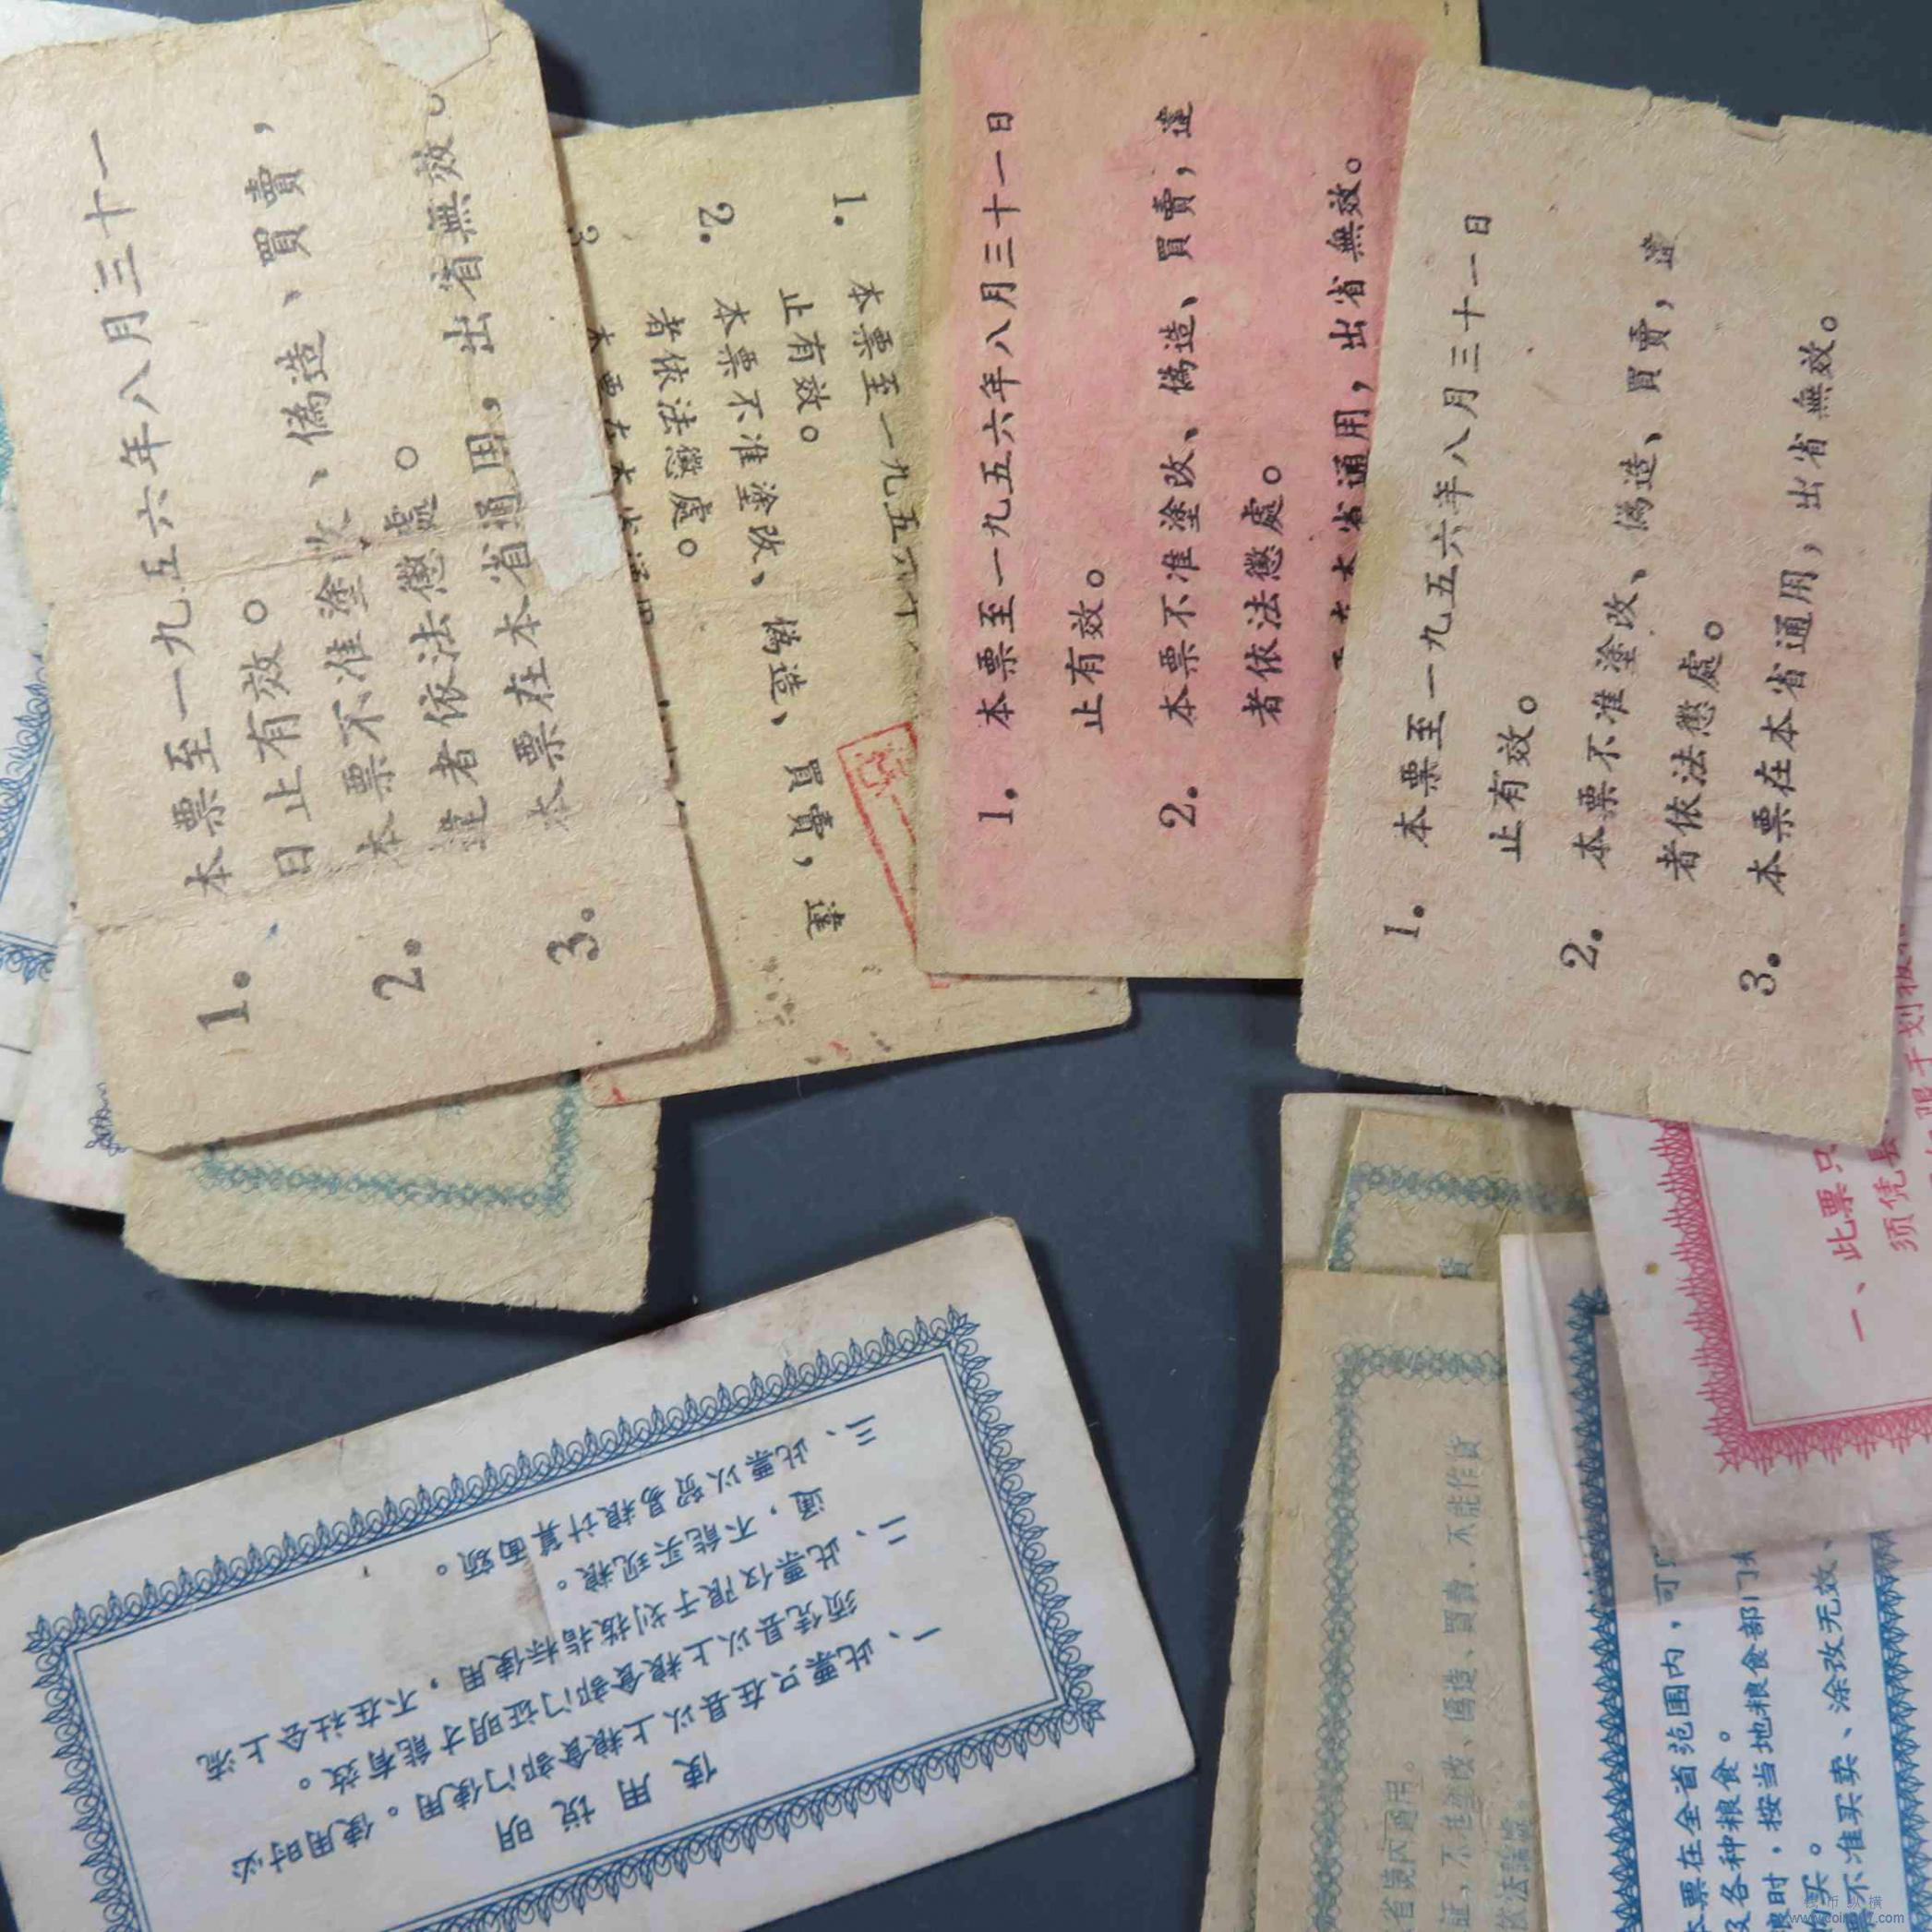 1. 本票至一九五六年八月三十一
日止有效。
2. 本票不准塗改、偽造、買賣,
違者依法懲處。
3. 本票在本省通用,出省無效。
1. 本票至一九五六年
止有效。
2. 本票不准塗改、偽造、買賣,違
者依法懲處。
1. 本票至一九五六年八月三十一日
止有效。
2. 本票不准塗改、偽造、買賣,違
者依法懲處。
本省通用,出省無效。
1. 本票至一九五六年八月三十一日
止有效。
2. 本票不准塗改、偽造、買賣,違
者依法懲處。
3. 本票在本省通用,出省無效。
使用说明
一、此票只在县以上粮食部门使用。使用时必
须凭县以上粮食部门证明才能有效。
二、此票仅限于划拨指标使用,不在社会上流
通,不能买现粮。
三、此票以贸易粮计算面额。
省境內通用。
証,不准塗改、偽造、買賣、不能作貨
依法論處。
貨
本票在全省范围内,可
及各种粮食。
时,按当地粮食部门
买。
不准买卖、涂改无效、
一、此票只
须凭县
限于划拨